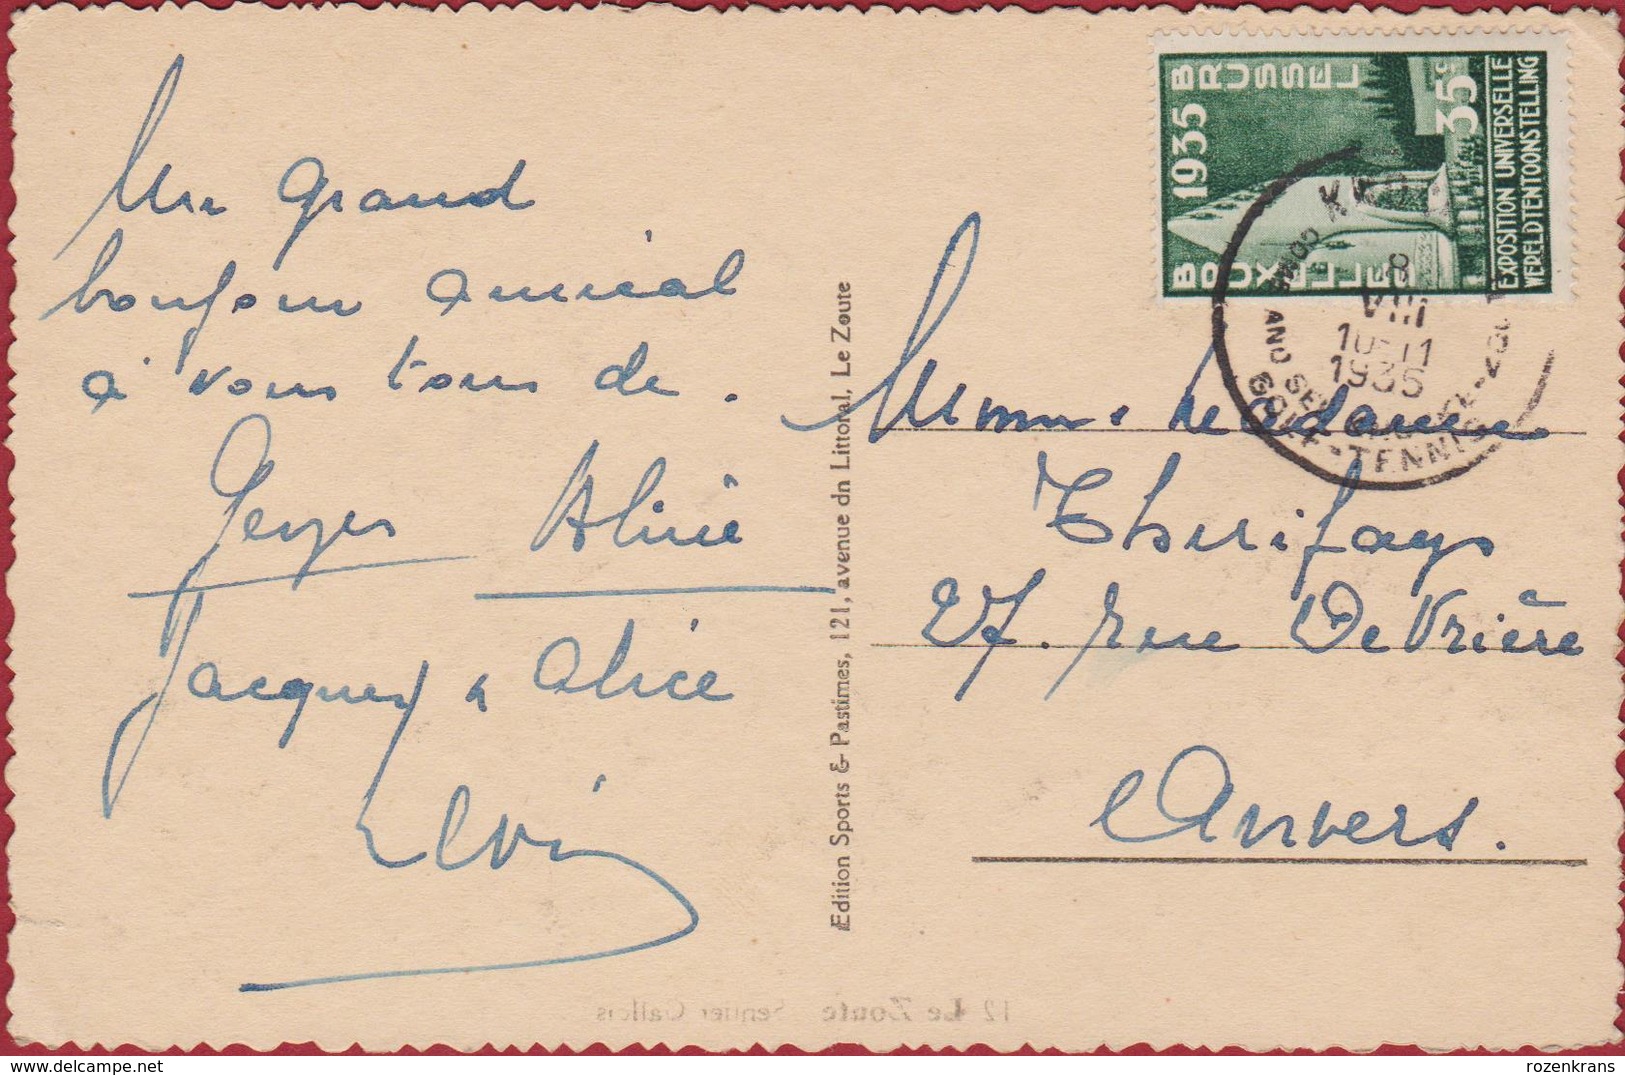 Un grand
bonjour amical
à vous tous de.
Georges Aline
Jacques & Alice
Ædition Sports & Pastimes, 121, avenue dn Littoral, Le Zoute
12 Le Zoute Sentier Gallois
1935 BRUSSEL
BRUXELLES
35c
EXPOSITION UNIVERSELLE
WERELDTENTOONSTELLING
8
VIII
10-11
1935
GOLF-TENNIS
Madame
Therifays
27. rue De Vrière
Anvers.
rozenkrans